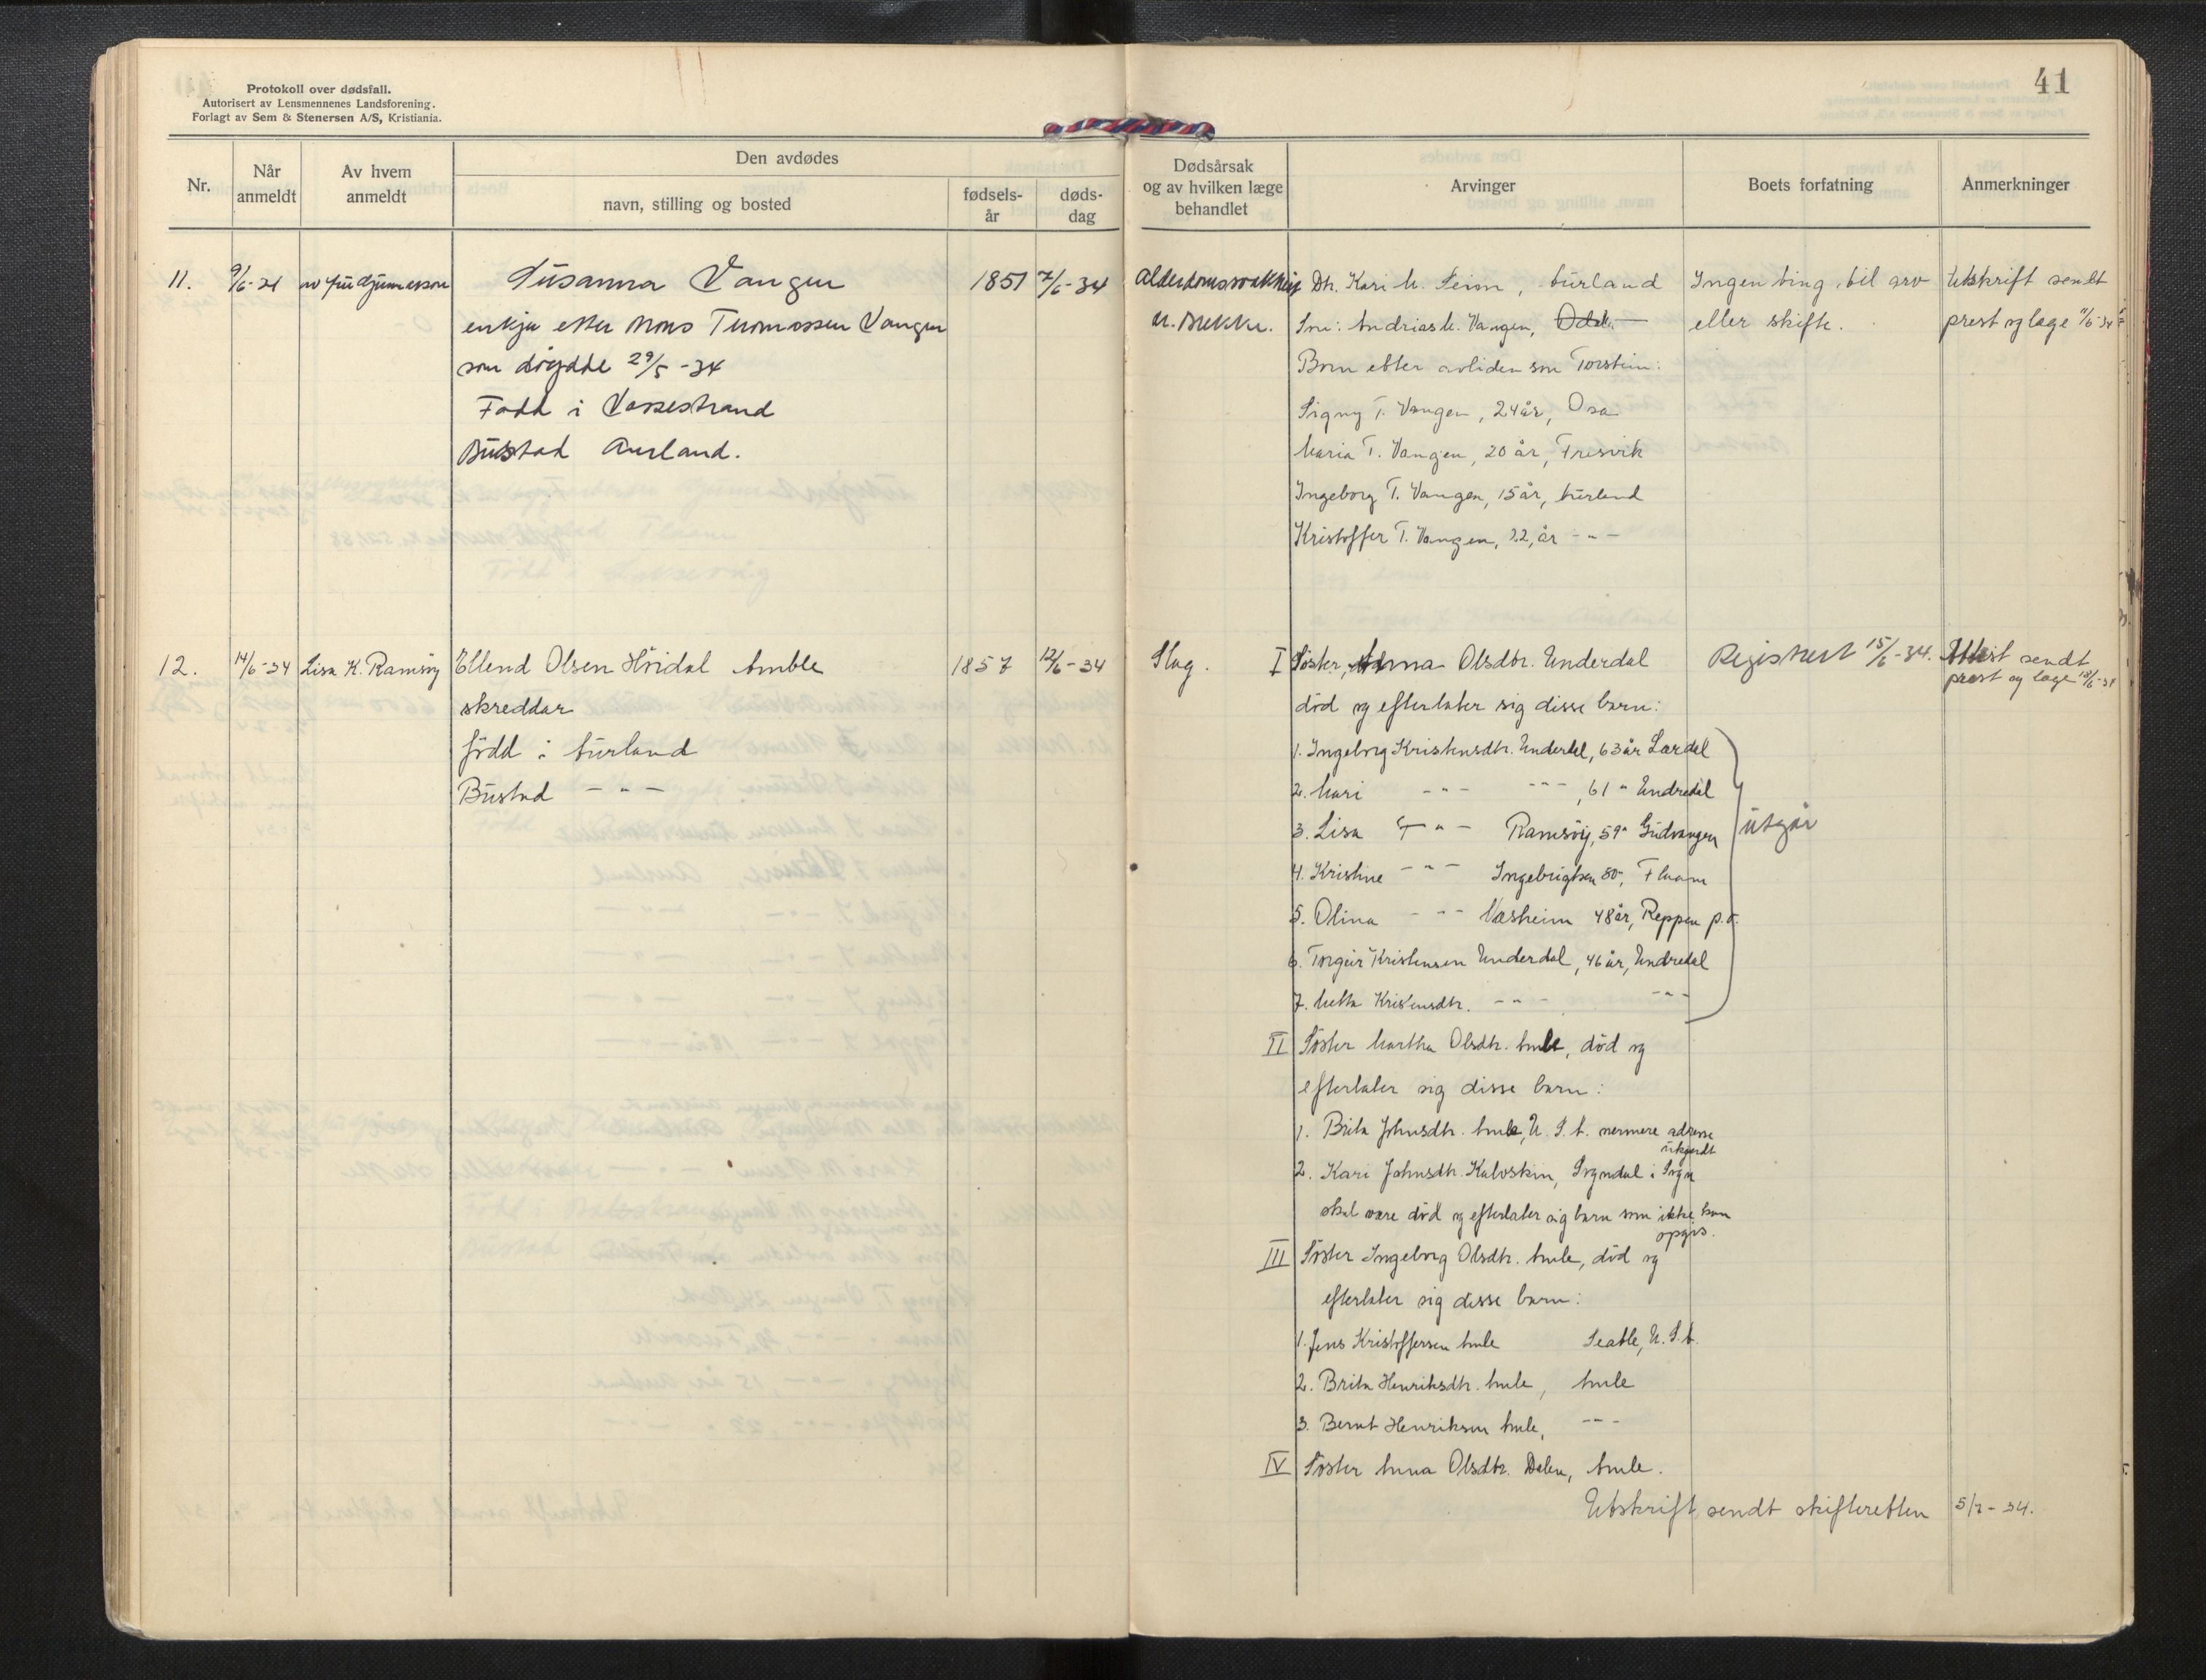 41
Protokoll over dødsfall.
Autorisert av Lensmennenes Landsforening.
Forlagt av Sem & Stenersen A/S, Kristiania.
Nr.
Når anmeldt
Av hvem anmeldt
Den avdødes
navn, stilling og bosted
fødsels-år
døds-dag
Dødsårsak og av hvilken læge behandlet
Arvinger
Boets forfatning
Anmerkninger
11.
Susanna Vangen
enkje etter Mons Thomassen Vangen
som döydde 29/5 - 34
Född i Vossestrand
Bustad Aurland.
1851
7/6-34
Dtr. Kari M. Seim, Aurland
Son: Andrias M. Vangen,
Born etter avliden son Torstein:
Signy T. Vangen, 24 år, Osa
Maria T. Vangen, 20 år, Fresvik
Ingeborg T. Vangen, 15 år, Aurland
Kristoffer T. Vangen, 22 år - " -
Ingen ting til arv
eller skifte.
Utskrift sendt
prest og læge
12.
14/6-34
Lisa K. Ramsöy
Ellend Olsen Hövidal Amble
skreddar
född i Aurland
Bustad - " -
1857
12/6-34
Slag.
I Söster, Anna Olsdtr. Underdal
död og efterlater sig disse barn:
1. Ingeborg Kristensdtr. Underdal, 63 år Lærdal
2. Mari - " - - " -, 61 " Undredal
3. Lisa - " - Ramsöy, 59 " Gudvangen
4. Kristine - " - Ingebrigtsen 50 ", Flaam
5. Olina - " - Væsheim 48 år, Reppen p.å.
6. Torgeir Kristensen Underdal, 46 år, Undredal
7. Metta Kristensdtr. - " - - " -
utgår
II Söster Martha Olsdtr. Amle, död og
efterlater sig disse barn:
1. Brita Johnsdtr. Amle, U. S. A. nermere adresse
ukjendt
2. Kari Johnsdtr. Kalvskin, Sogndal i Sogn
skal være död og efterlater sig barn som ikke kan
opgis.
III Söster Ingeborg Olsdtr. Amle, död og
efterlater sig disse barn:
1. Jens Kristoffersen Amle Seatle, U. S. A.
2. Brita Henriksdtr. Amle, Amle
3. Bernt Henriksen Amle, - " -
IV Söster Anna Olsdtr. Dalen, Amle.
Registrert 15/6-34.
sendt
prest og læge
Utskrift sendt skifteretten 5/7-34.